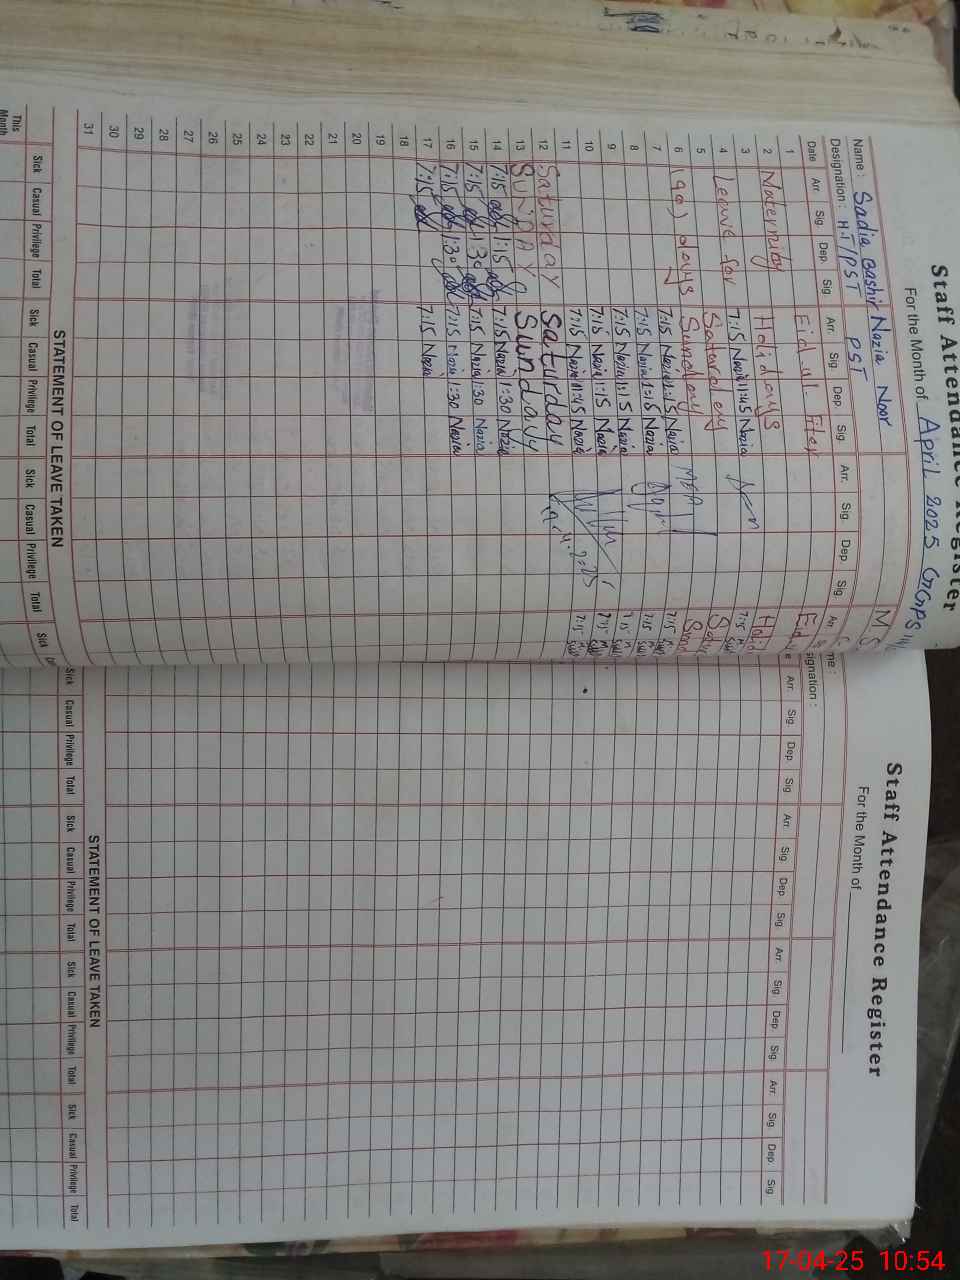 Staff Attendance Register
For the Month of April 2025 GGPS
Name : Sadia Bashir Nazia Noor
Designation : H.T/PST PST
Date Arr. Sig Dep. Sig Arr. Sig. Dep. Sig Arr. Sig. Dep Sig. Arr
1 Eid ul. Fiter Eid
2 Maternity Holidays Holid
3 7:15 Nazia 11:45 Nazia 7:15
4 Leave for
5 Saturday
6 (90) days Sunday
7 7:15 Nazia 1:15 Nazia 7:15
8 7:15 Nazia 1:15 Nazia 7:15
9 7:15 Nazia 1:15 Nazia 7:15
10 7:15 Nazia 1:15 Nazia 7:15
11 7:15 Nazia 11:45 Nazia 7:15
12 Saturday Saturday
13 SUNDAY Sunday
14 7:15 1:15 7:15 Nazia 1:30 Nazia
15 7:15 1:30 7:15 Nazia 1:30 Nazia
16 7:15 1:30 7:15 Nazia 1:30 Nazia
17 7:15 7:15 Nazia
18
19
20
21
22
23
24
25
26
27
28
29
30
31
MEA
STATEMENT OF LEAVE TAKEN
Sick Casual Privilege Total Sick Casual Privilege Total Sick Casual Privilege Total Sick
This Month
Staff Attendance Register
For the Month of
me :
signation :
Arr. Sig. Dep. Sig. Arr. Sig. Dep. Sig. Arr. Sig. Dep. Sig. Arr. Sig. Dep. Sig.
STATEMENT OF LEAVE TAKEN
Sick Casual Privilege Total Sick Casual Privilege Total Sick Casual Privilege Total Sick Casual Privilege Total
Sick Casual Privilege Total Sick Casual Privilege Total Sick Casual Privilege Total Sick Casual Privilege Total
17-04-25 10:54